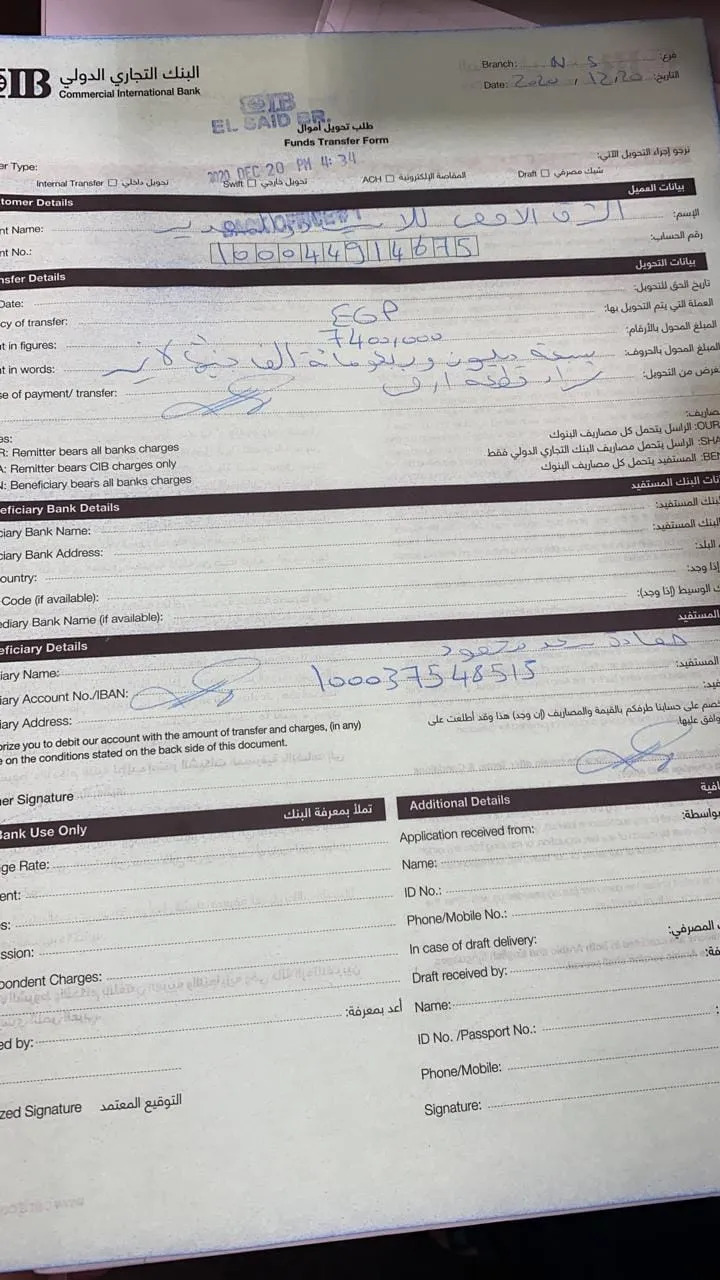 IB البنك التجاري الدولي
Commercial International Bank
Branch: N S فرع:
Date: 2020, 12,20 التاريخ:
CIB
EL SAID BR.
طلب تحويل أموال
Funds Transfer Form
2020 DEC 20 PM 4: 34
نرجو إجراء التحويل الآتي:
er Type:
Internal Transfer تحويل داخلي Swift تحويل خارجي ACH المقاصة الإلكترونية Draft شيك مصرفي
tomer Details بيانات العميل
nt Name: الإسم:
nt No.: 100044914675 رقم الحساب:
nsfer Details بيانات التحويل
Date: تاريخ الحق للتحويل:
cy of transfer: EGP العملة التي يتم التحويل بها:
nt in figures: 7400,000 المبلغ المحول بالأرقام:
nt in words: سبعة مليون وربعمائة الف جنيه لا غير المبلغ المحول بالحروف:
se of payment/ transfer: شراء قطعة ارض غرض من التحويل:
es: صاريف:
R: Remitter bears all banks charges OUR: الراسل يتحمل كل مصاريف البنوك
A: Remitter bears CIB charges only SHA: الراسل يتحمل مصاريف البنك التجاري الدولي فقط
N: Beneficiary bears all banks charges BEN: المستفيد يتحمل كل مصاريف البنوك
eficiary Bank Details نات البنك المستفيد
ciary Bank Name: بنك المستفيد:
ciary Bank Address: البنك المستفيد:
ountry: البلد:
Code (if available): إذا وجد):
ediary Bank Name (if available): ك الوسيط (إذا وجد):
eficiary Details المستفيد
iary Name: حمادة سعد محمود
iary Account No./IBAN: 100037548515 المستفيد:
iary Address: فيد:
orize you to debit our account with the amount of transfer and charges, (in any) خصم على حسابنا طرفكم بالقيمة والمصاريف (إن وجد) هذا وقد أطلعت على
e on the conditions stated on the back side of this document. وافق عليها.
er Signature
Bank Use Only تملأ بمعرفة البنك
Additional Details افية
ge Rate:
Application received from: بواسطة:
ent:
Name:
s:
ID No.:
ssion:
Phone/Mobile No.:
pondent Charges:
In case of draft delivery: ك المصرفي:
Draft received by: فة:
ed by: أعد بمعرفة:
Name:
ID No. /Passport No.:
Phone/Mobile:
zed Signature التوقيع المعتمد
Signature: